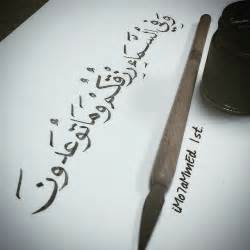 وَفِي السَّمَاءِ رِزْقُكُمْ وَمَا تُوعَدُونَ
iMo7aMmEd 1st